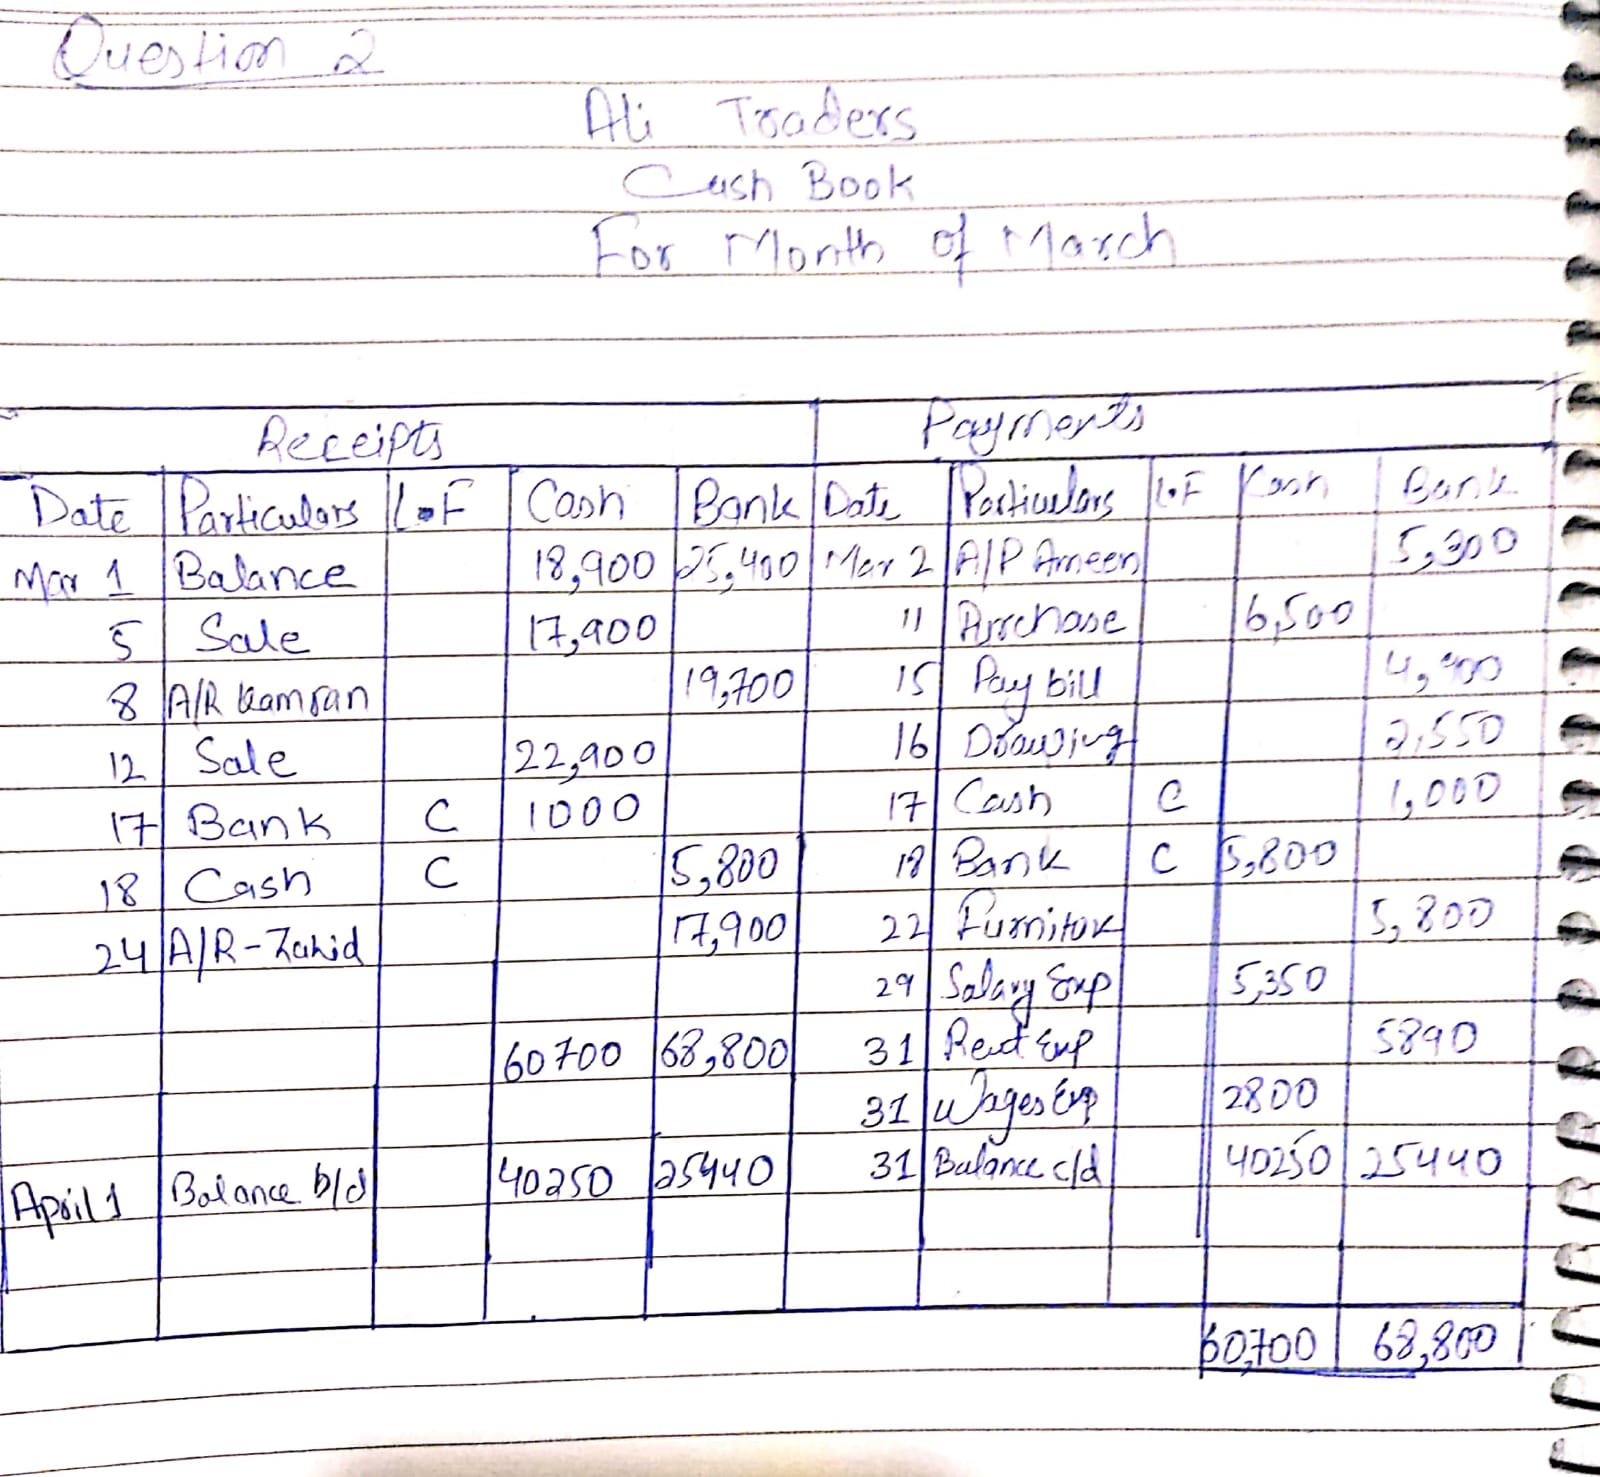 Question 2
Ali Traders
Cash Book
For Month of March
Receipts Payments
Date Particulars L.F Cash Bank Date Particulars L.F Cash Bank
Mar 1 Balance 18,900 25,400 Mar 2 A/P Ameen 5,300
5 Sale 17,900 11 Purchase 6,500
8 A/R Kamran 19,700 15 Pay bill 4,900
12 Sale 22,900 16 Drawing 2,550
17 Bank C 1000 17 Cash C 1,000
18 Cash C 5,800 18 Bank C 5,800
24 A/R-Zahid 17,900 22 5,800
29 Salary Exp 5,350
60700 68,800 31 Rent Exp 5890
31 Wages Exp 2800
April 1 Balance b/d 40250 25440 31 Balance c/d 40250 25440
60,700 68,800